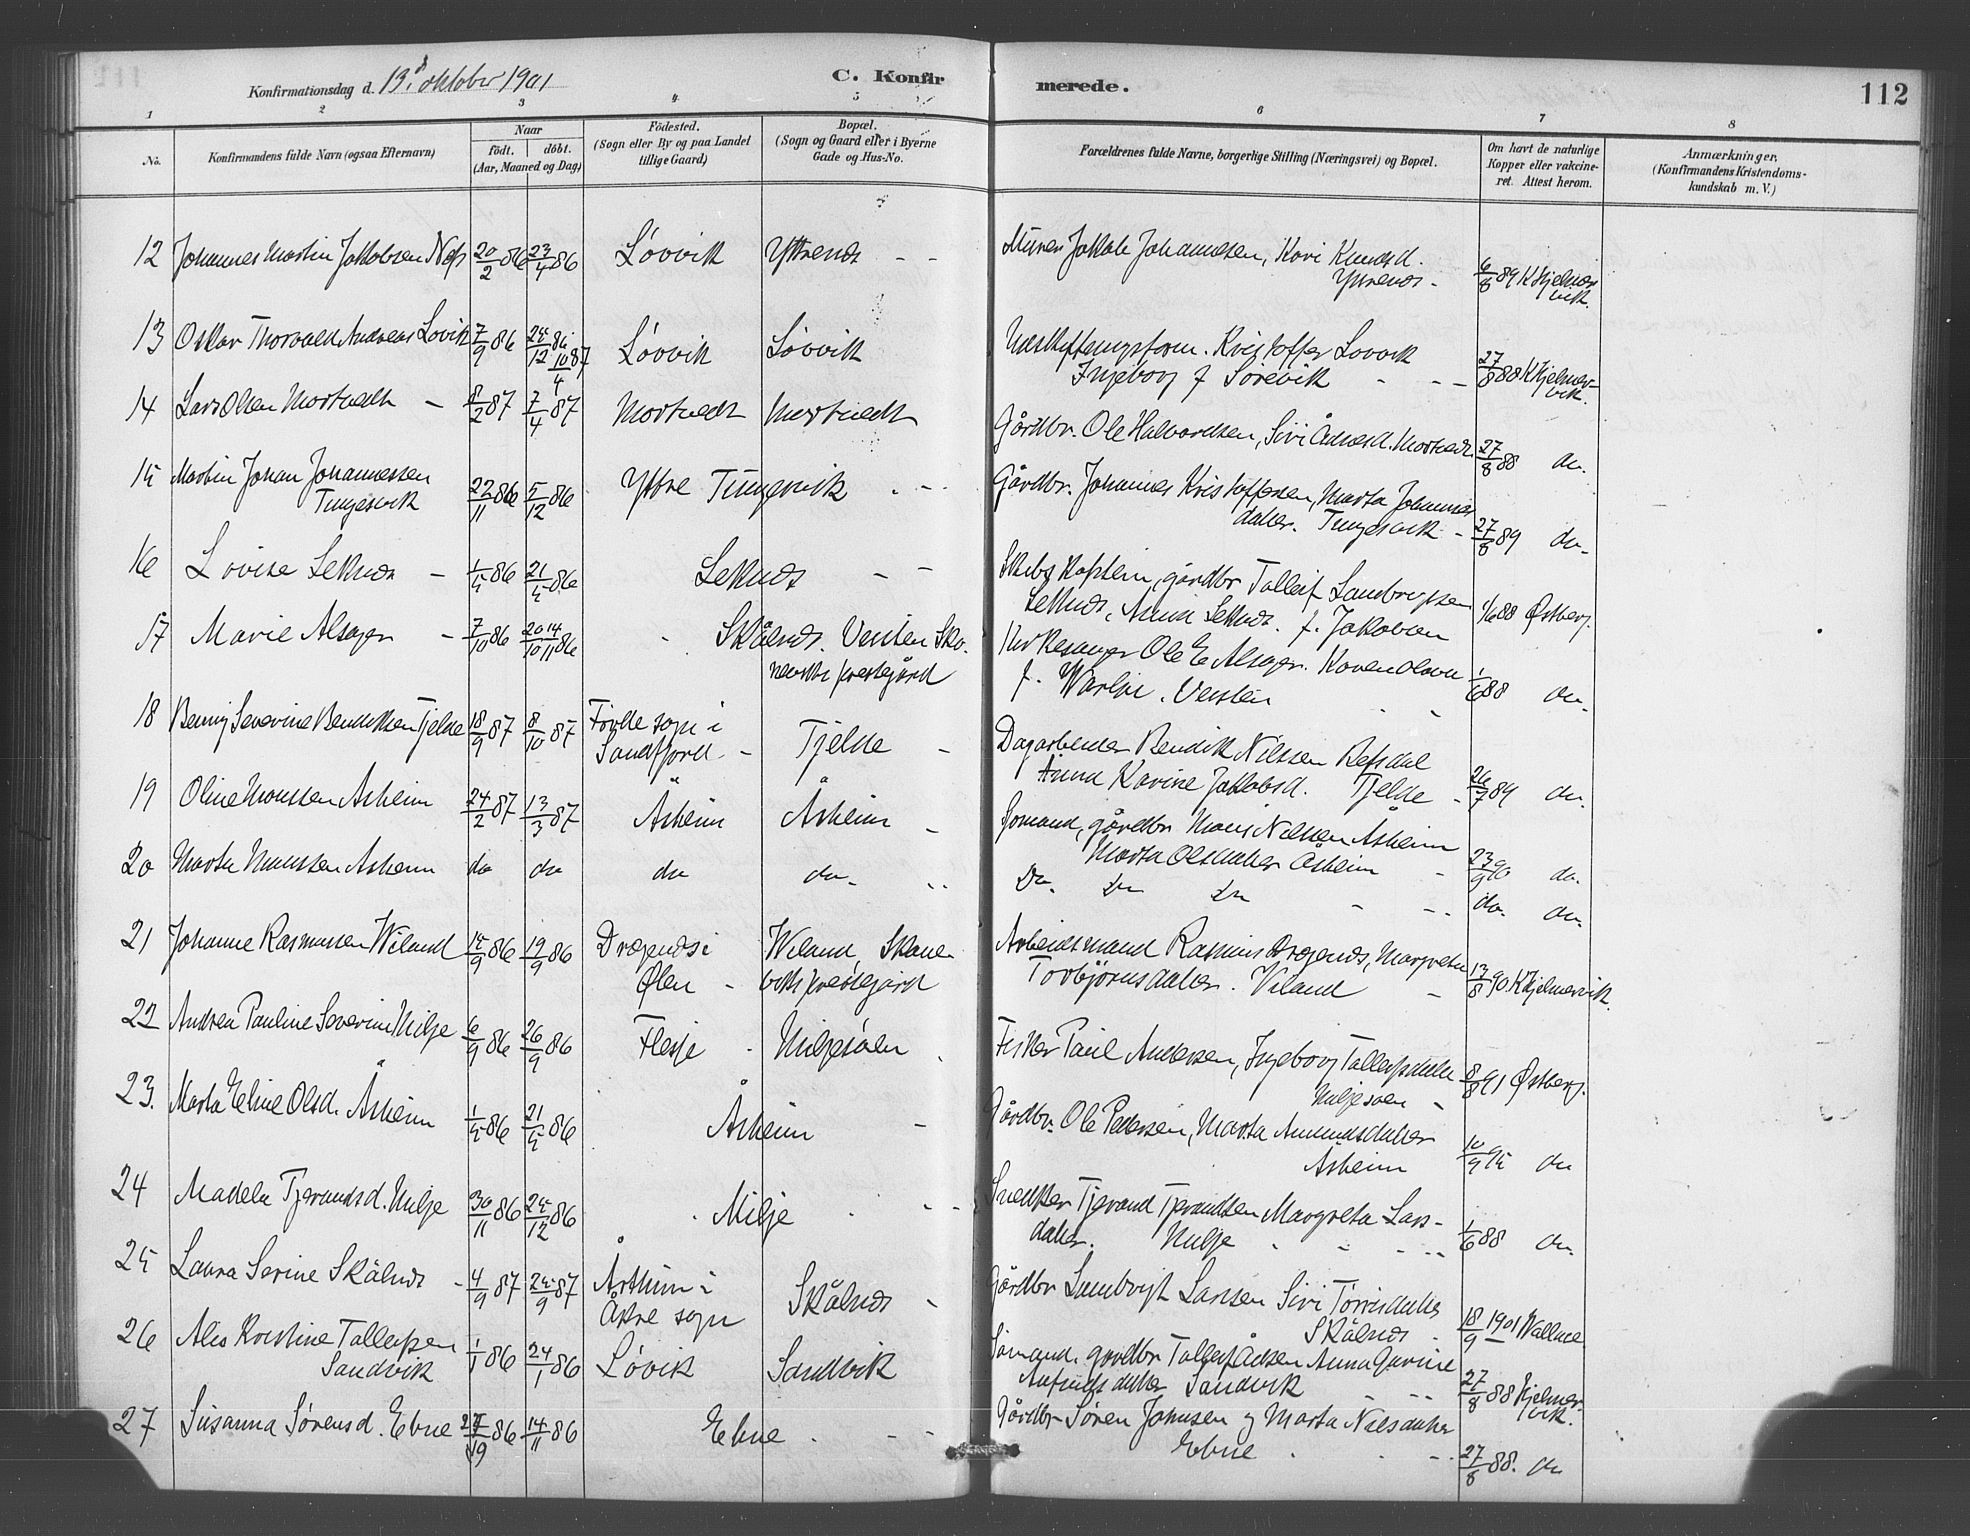 Konfirmationsdag d. 13. oktober 1901
C. Konfirmerede.
112
1 2 3 4 5 6 7 8
No.
Konfirmandens fulde Navn (ogsaa Efternavn)
Naar
födt. döbt.
(Aar, Maaned og Dag)
Födested.
(Sogn eller By og paa Landet
tillige Gaard)
Bopæl.
(Sogn og Gaard eller i Byerne
Gade og Hus-No.
Forældrenes fulde Navne, borgerlige Stilling (Næringsvei) og Bopæl.
Om havt de naturlige
Kopper eller vakcine-
ret. Attest herom.
Anmærkninger,
(Konfirmandens Kristendoms-
kundskab m. V.)
12 Johannes Martin Jakobsen Næs 20/2 86 23/4 86 Løvvik Yttrenæs Murer Jakob Johannesen, Kari Knudsd.
Yttrenæs 6/8 89 K Hjelmer-
vik.
13 Oskar Thorvald Andreas Lovik 7/9 86 25/12 86 10/4 87 Løvvik Løvvik Kristoffer Lovvik
Ingeborg f Sørevik 27/8 88 K Hjelmer-
vik.
14 Lars Olsen Mortvedt 8/2 87 7/4 87 Mortvedt Mortvedt Gårdbr. Ole Halvordsen, Siri Mortvedt 27/8 88 do.
15 Martin Johan Johannessen
Tungesvik 22/11 86 5/12 86 Yttre Tungesvik Gårdbr. Johannes Kristoffersen, Marta Johannes
datter. Tungesvik 27/8 89 do.
16 Lovise Leknæs 1/5 86 21/5 86 Leknæs Skibskaptein, gårdbr Tolleif Lambregtsen
Leknæs, Anna Leknæs f. Jakobsen 1/6 88 Østberg.
17 Marie Alsager 7/10 86 20/10 14/11 86 Skålnæs. Veisten Skå-
neviks prestegård Kirkesanger Ole E Alsager. Karen Olava
f. Warloe. Veisten 1/6 88 do.
18 Benny Severine Bendiksen Tjelde 18/9 87 8/10 87 Førde sogn i
Søndfjord Tjelde Dagarbeider Bendik Nilssen Refsdal
Anna Karine Jakobsd. Tjelde 26/7 89 do.
19 Oline Monssen Åsheim 24/2 87 13/3 87 Åsheim Åsheim Sømand, gårdbr Mons Nilssen Åsheim
Marta Olsdatter Åsheim 23/9 90 do.
20 Marta Monssen Åsheim do do do do. Do. Do Do do. do.
21 Johanne Rasmussen Wiland 15/9 86 19/9 86 Drægenæs i
Ølen Wiland, Skåne-
viks prestegård Arbeidsmand Rasmus Drægenæs, Margreta
Torbjørnsdatter. Viland 13/8 90 K Hjelmervik.
22 Andrea Pauline Severine Milje 6/9 86 26/9 86 Flesje Miljesøen Fisker Paul Andersen, Ingeborg Tolleifsdatter
Miljesøen 8/8 91 Østberg.
23. Marta Eline Olsd. Åsheim 1/5 86 21/5 86 Åsheim Gårdbr. Ole Pedersen, Marta Amundsdatter
Åsheim 10/9 95 do
24 Madela Tjerandsd. Milje 30/11 86 25/12 86 Milje Snedker Tjerand Tjerandsen Margreta Lars-
datter. Milje 1/6 88 do.
25 Laura Serine Skålnæs 4/9 87 25/9 87 Arthun i
Åkre sogn Skålnæs Gårdbr Lambregt Larsen Siri Torrisdatter
Skålnæs 18/9 1901 Wallace
26 Ales Kristine Tolleifsen
Sandvik 1/1 86 24/1 86 Løvik Sandvik Sømand. gårdbr Tolleif Adsen Anna Gurine
Anfindsdatter Sandvik 27/8 88 Hjelmer-
vik.
27 Susanna Sørensd. Ebne 27/9 86 14/11 86 Ebne Gårdbr Søren Johnsen og Marta Nilsdatter
Ebne 27/8 88. do